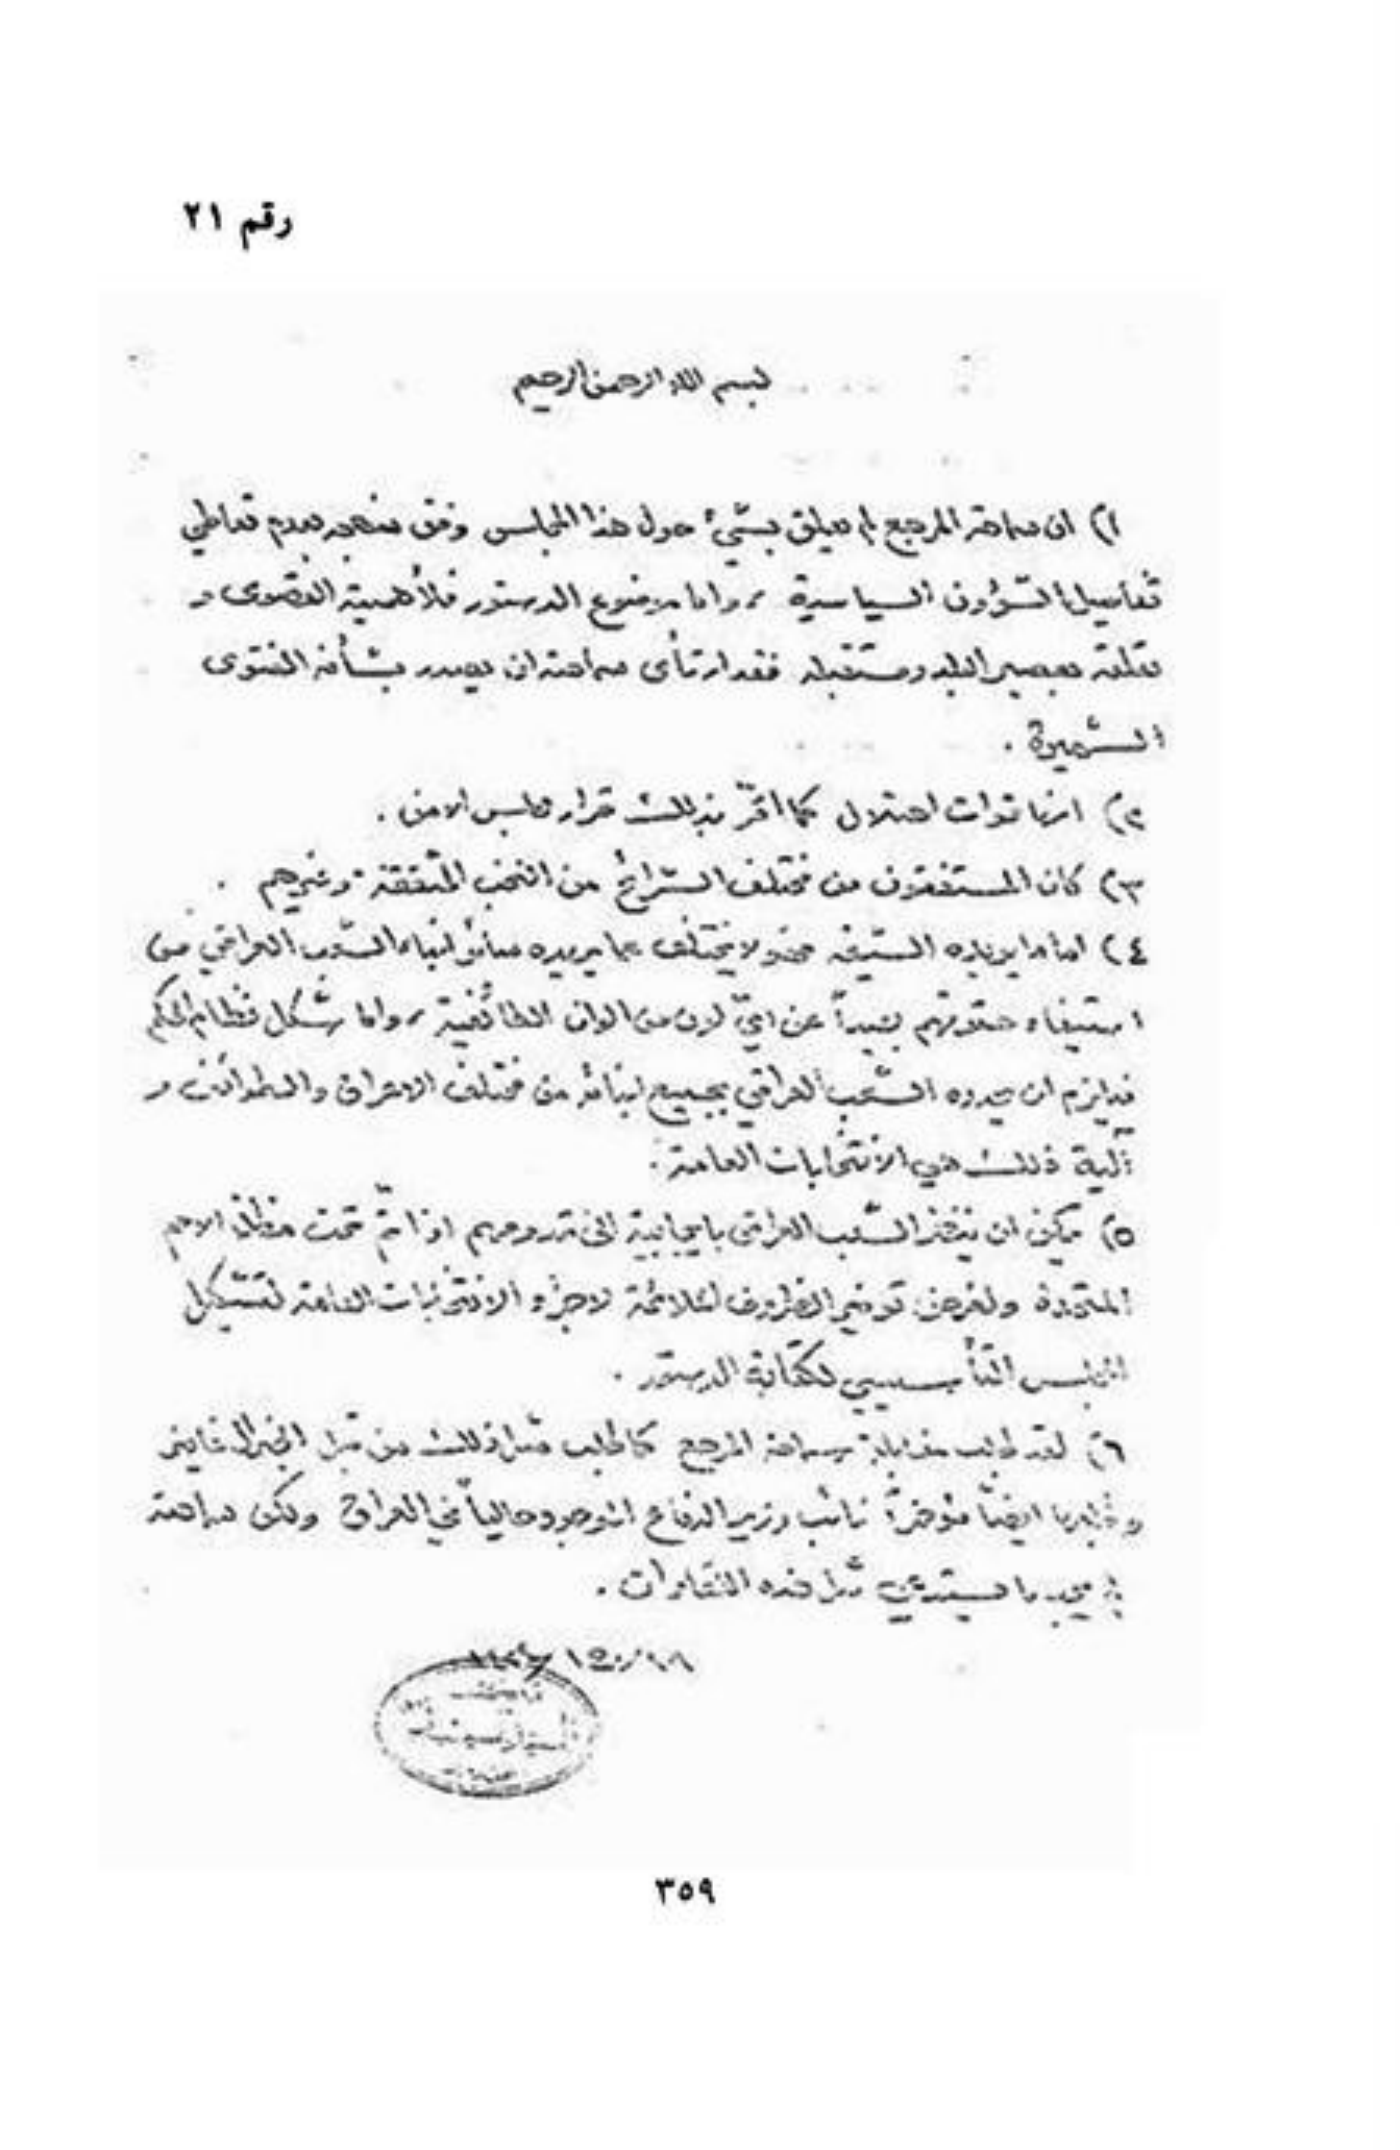 رقم ٢١
بسم الله الرحمن الرحيم
١) ان سماحة المرجع لم يعلق بشيء حول هذا المجلس وفق منهجه بعدم تعاطي
تفاصيل الشؤون السياسية، واما موضوع الدستور فلأهميته القصوى و
تعلقه بمصير البلد ومستقبله فقد ارتأى سماحته ان يصدر بشأنه الفتوى
الشهيرة .
٢) انها قوات احتلال كما اقرّ بذلك قرار مجلس الامن .
٣) كان المستفتون من مختلف الشرائح من النخب المثقفة وغيرهم .
٤) اما ما يريده الشيعة فهو لا يختلف عما يريده سائر ابناء الشعب العراقي من
استيفاء حقوقهم بعيداً عن ايّ لون من الوان الطائفية، واما شكل نظام الحكم
فيلزم ان يحدده الشعب العراقي بجميع ابنائه من مختلف الاعراق والطوائف و
آلية ذلك هي الانتخابات العامة .
٥) يمكن ان ينظر الشعب العراقي بايجابية الى قدومهم اذا تمّ تحت مظلة الامم
المتحدة ولغرض توفير الظروف الملائمة لاجراء الانتخابات العامة لتشكيل
المجلس التأسيسي لكتابة الدستور .
٦) لقد طلب مقابلة سماحة المرجع كما طلب مثل ذلك من قبل الجنرال
وطلبها ايضاً مؤخراً نائب وزير الدفاع الموجود حالياً في العراق ولكن سماحته
لم يجد ما يستدعي مثل هذه اللقاءات .
٣٥٩